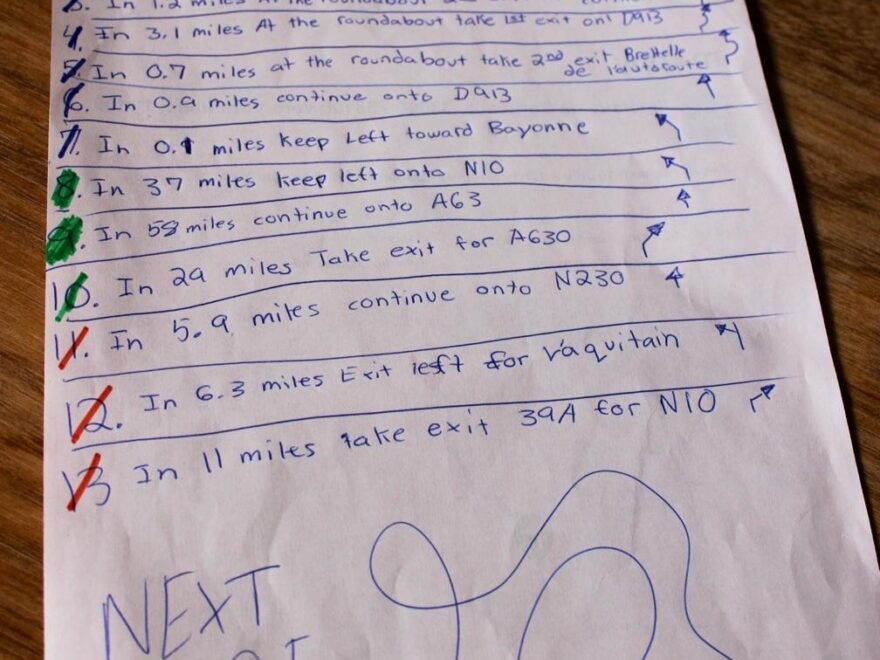 3. In 1.2 miles At the roundabout
4. In 3.1 miles At the roundabout take 1st exit ont D913
5. In 0.7 miles at the roundabout take 2nd exit Bretelle
de l'autoroute
6. In 0.9 miles continue onto D913
7. In 0.1 miles Keep Left toward Bayonne
8. In 37 miles keep left onto N10
9. In 58 miles continue onto A63
10. In 29 miles Take exit for A630
11. In 5.9 miles continue onto N230
12. In 6.3 miles Exit left for l'aquitain
13 In 11 miles take exit 39A for N10
NEXT